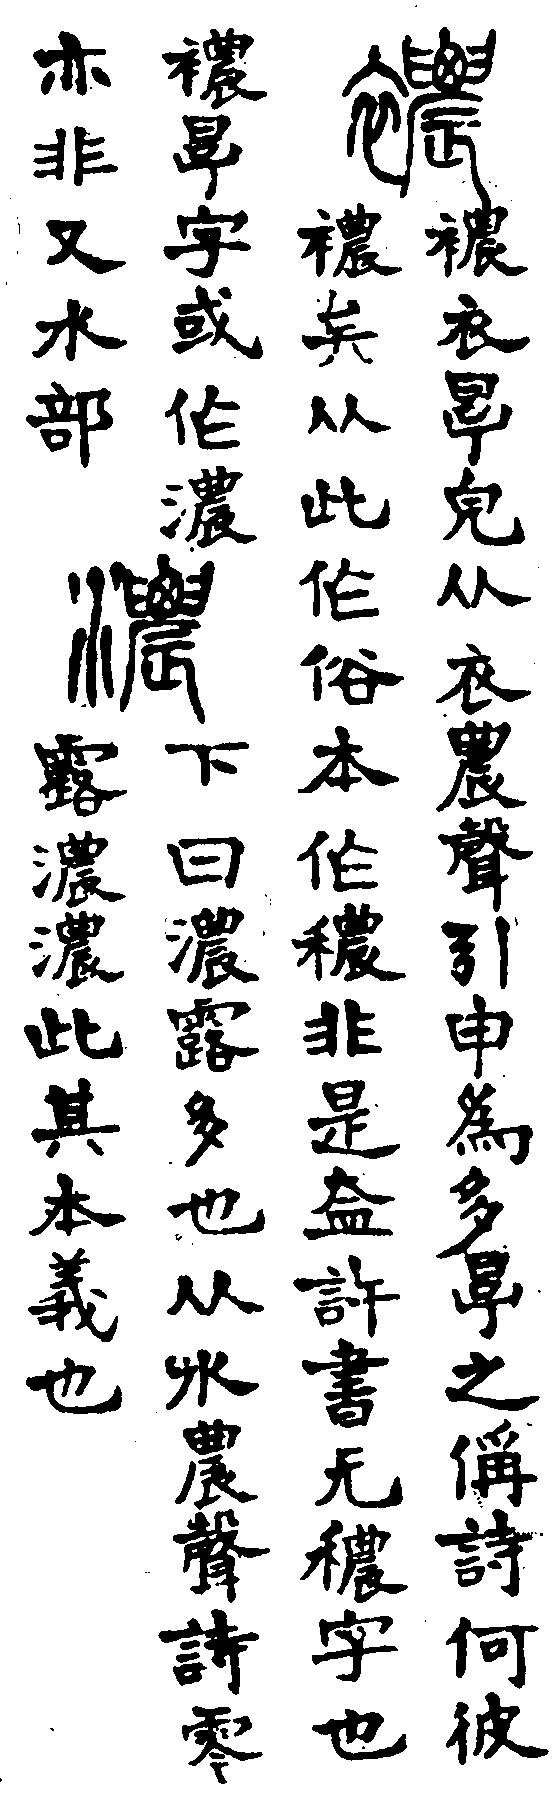 襛
襛衣㫗皃从衣農聲引申爲多㫗之偁詩何彼
襛矣从此作俗本作穠非是盇許書无穠字也
襛㫗字或作濃
亦非又水部
濃
下曰濃露多也从水農聲詩零
露濃濃此其本義也